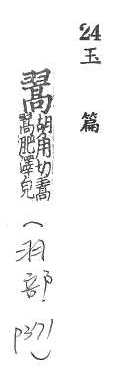 24 玉篇
翯 胡角切翯
翯肥澤皃
(羽部
P371)